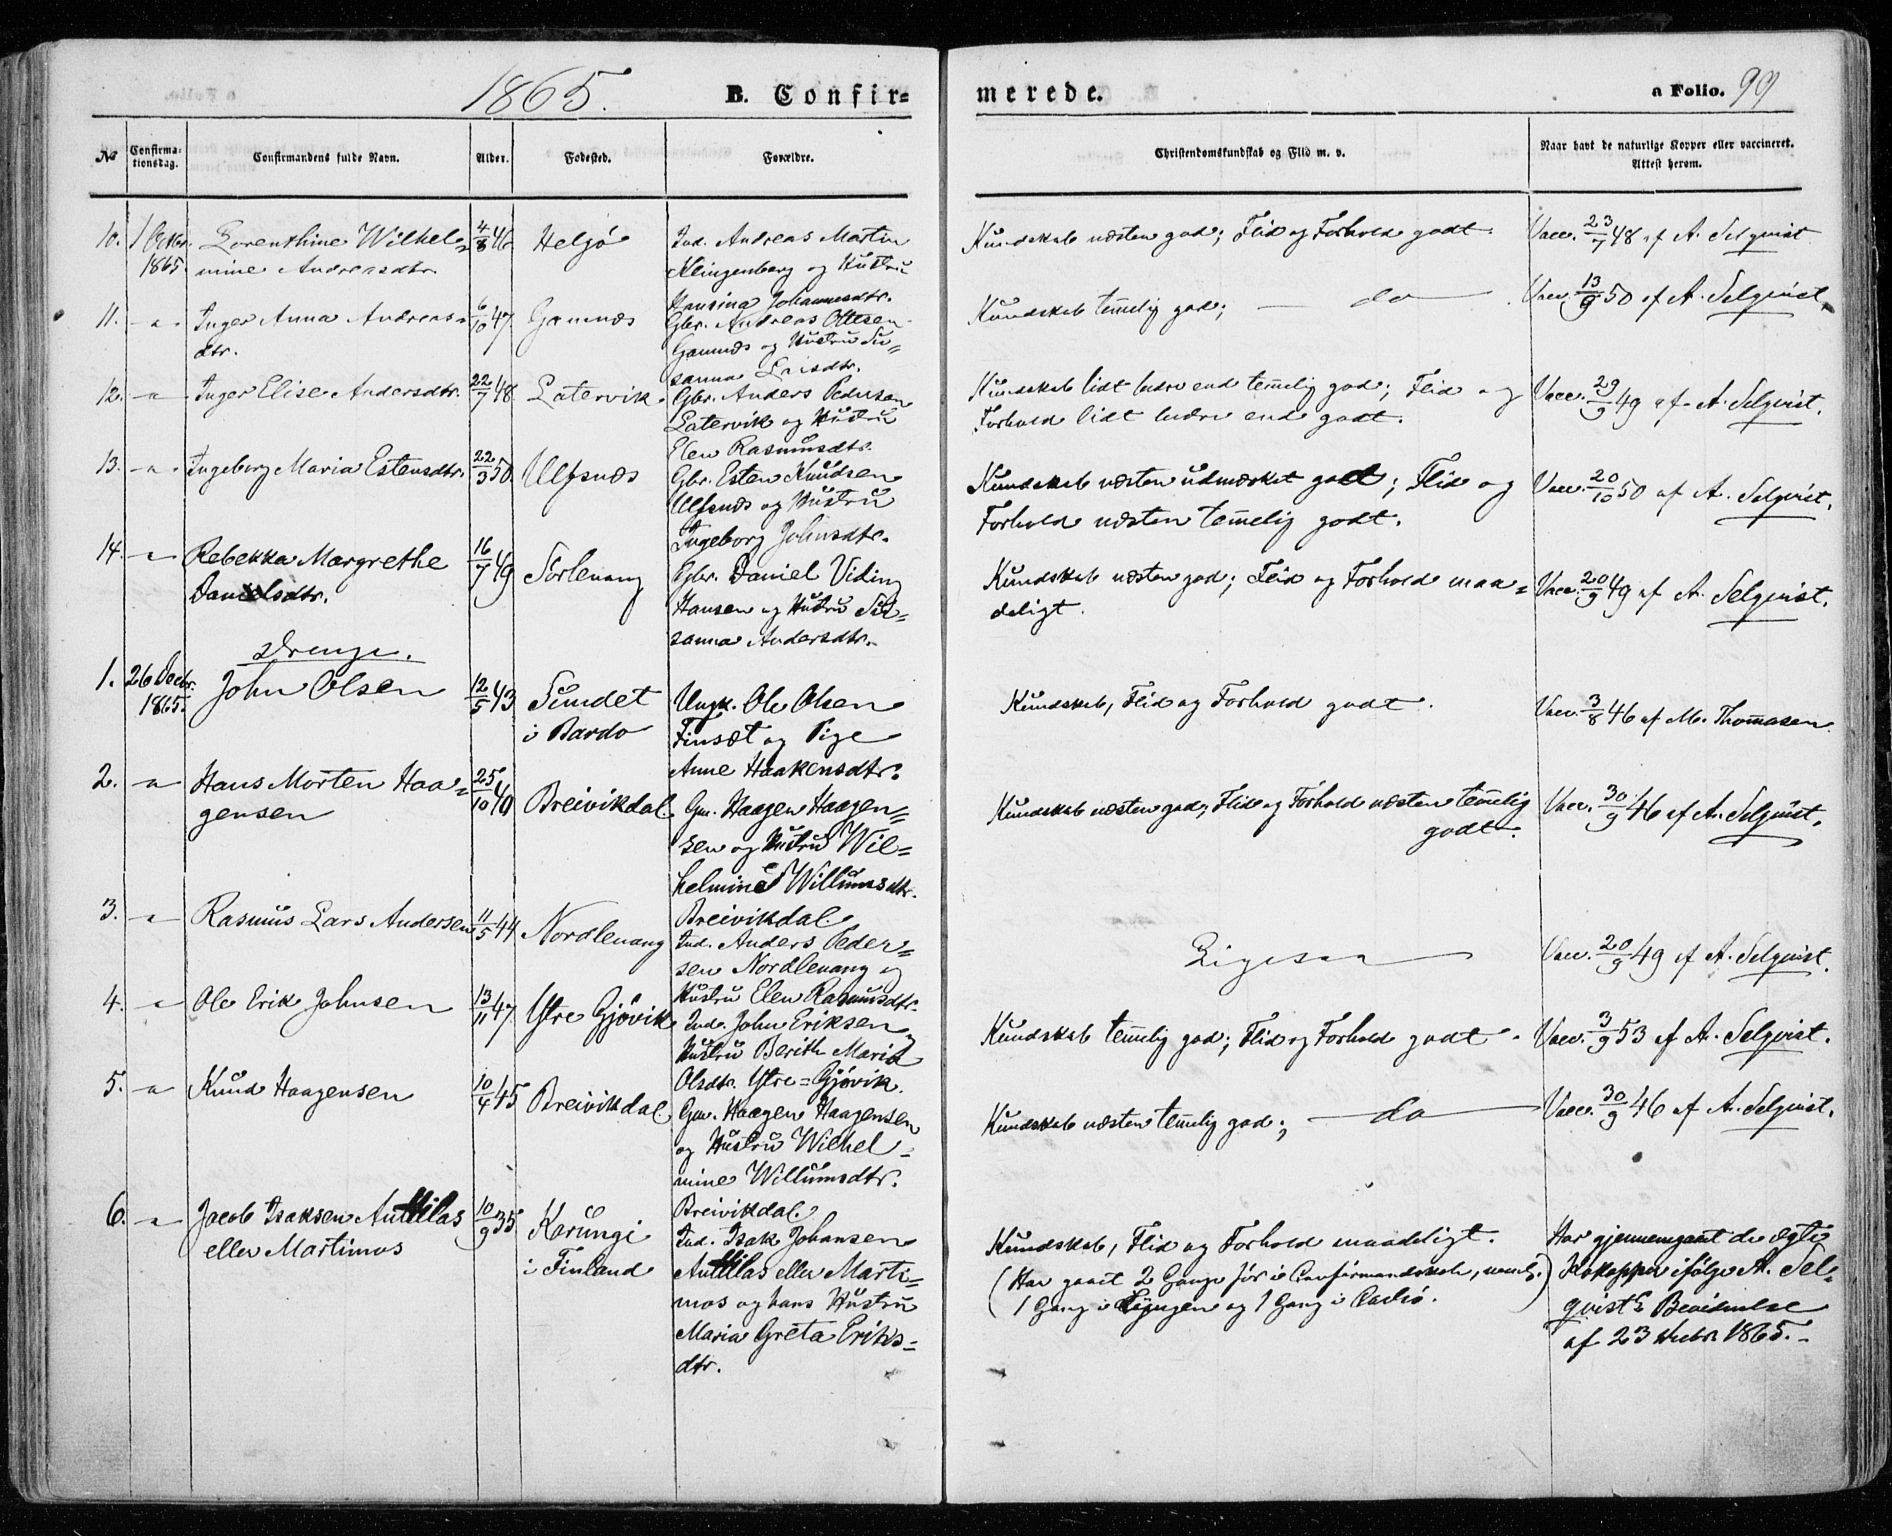 1865.
B. Confir=
merede.
a Folio. 99
No
Confirma-
tionsdag.
Confirmandens fulde Navn.
Alder.
Fødested.
Forældre.
Christendomskundskab og Flid m. v.
Naar havt de naturlige Kopper eller vaccineret.
Attest herom.
10. 1 Octbr. 1865. Lorenthine Wilhel= 4/8 46 Heljø Ind. Andreas Martin Kundskab næsten god; Flid og Forhold godt. Vacc. 23/7 48 af A. Selqvist
mine Andreasdtr. Klingenberg og Hustru
Hansina Johannesdtr.
11. -"- Inger Anna Andreas= 6/10 47 Gamnæs Gbr. Andreas Ottesen Kundskab temelig god; do Vacc. 13/9 50 af A. Selqvist.
dtr. Gamnæs og Hustru Su=
sanna Larsdtr.
12. -"- Inger Elise Andersdtr. 22/7 48 Latervik. Gbr. Anders Pedersen Kundskab lidt bedre end temelig god; Flid og Vacc. 29/9 49 af A. Selqvist.
Latervik og Hustru Forhold lidt bedre end godt.
Elen Rasmusdtr.
13. -"- Ingeborg Maria Estensdtr. 22/3 50. Ulfsnæs Gbr. Esten Knudsen Kundskab næsten udmærket god; Flid og Vacc. 20/10 50 af A. Selqvist.
Ulfsnæs og Hustru Forhold næsten temelig godt.
Ingeborg Johnsdtr.
14. -"- Rebekka Margrethe 16/7 49 Sørlenang Gbr. Daniel Viding Kundskab næsten god; Flid og Forhold maa= Vacc. 20/9 49 af A. Selqvist.
Danielsdtr. Hansen og Hustru Su= deligt.
sanna Andersdtr.
Drenge.
1. 26 Decbr. 1865. John Olsen 12/5 43 Sundet Ungk. Ole Olsen Kundskab, Flid og Forhold godt. Vacc. 3/8 46 af M. Thomasen.
i Bardo Finsæt og Pige
Anne Haakensdtr.
2. -"- Hans Morten Haa= 25/10 40 Breivikdal Gm. Haagen Haagen= Kundskab næsten god; Flid og Forhold næsten temelig Vacc. 30/9 46 af A. Selqvist.
gensen sen og Hustru Wil= godt.
helmine Willumsdtr.
Breivikdal.
3. -"- Rasmus Lars Andersen 11/5 44 Nordlenang Ind. Anders Peder= Ligesaa Vacc. 20/9 49 af A. Selqvist.
sen Nordlenang og
Hustru Elen Rasmusdtr.
4. -"- Ole Erik Johnsen 13/11 47 Ytre Gjøvik Ind. John Eriksen og Kundskab temelig god; Flid og Forhold godt. Vacc. 3/9 53 af A. Selqvist.
Hustru Berith Maria
Olsdtr. Ytre=Gjøvik.
5. -"- Knud Haagensen 10/4 45 Breivikdal Gm. Haagen Haagensen Kundskab næsten temelig god; do Vacc. 30/9 46 af A. Selqvist.
og Hustru Wilhel=
mine Willumsdtr.
Breivikdal.
6. -"- Jacob Isaksen Anttilas 10/9 35 Karungi Ind. Isak Johansen Kundskab, Flid og Forhold maadeligt. Har gjennemgaaet de ægte
eller Martimos i Finland Anttilas eller Marti= (Har gaaet 2 Gange før i Confirmandskole, neml. Kokopper ifølge A. Sel=
mos og hans Hustru 1 Gang i Lyngen og 1 Gang i Carlsø.) qvists Bevidnelse
Maria Greta Eriks= af 23 Decbr 1865.-
dtr.